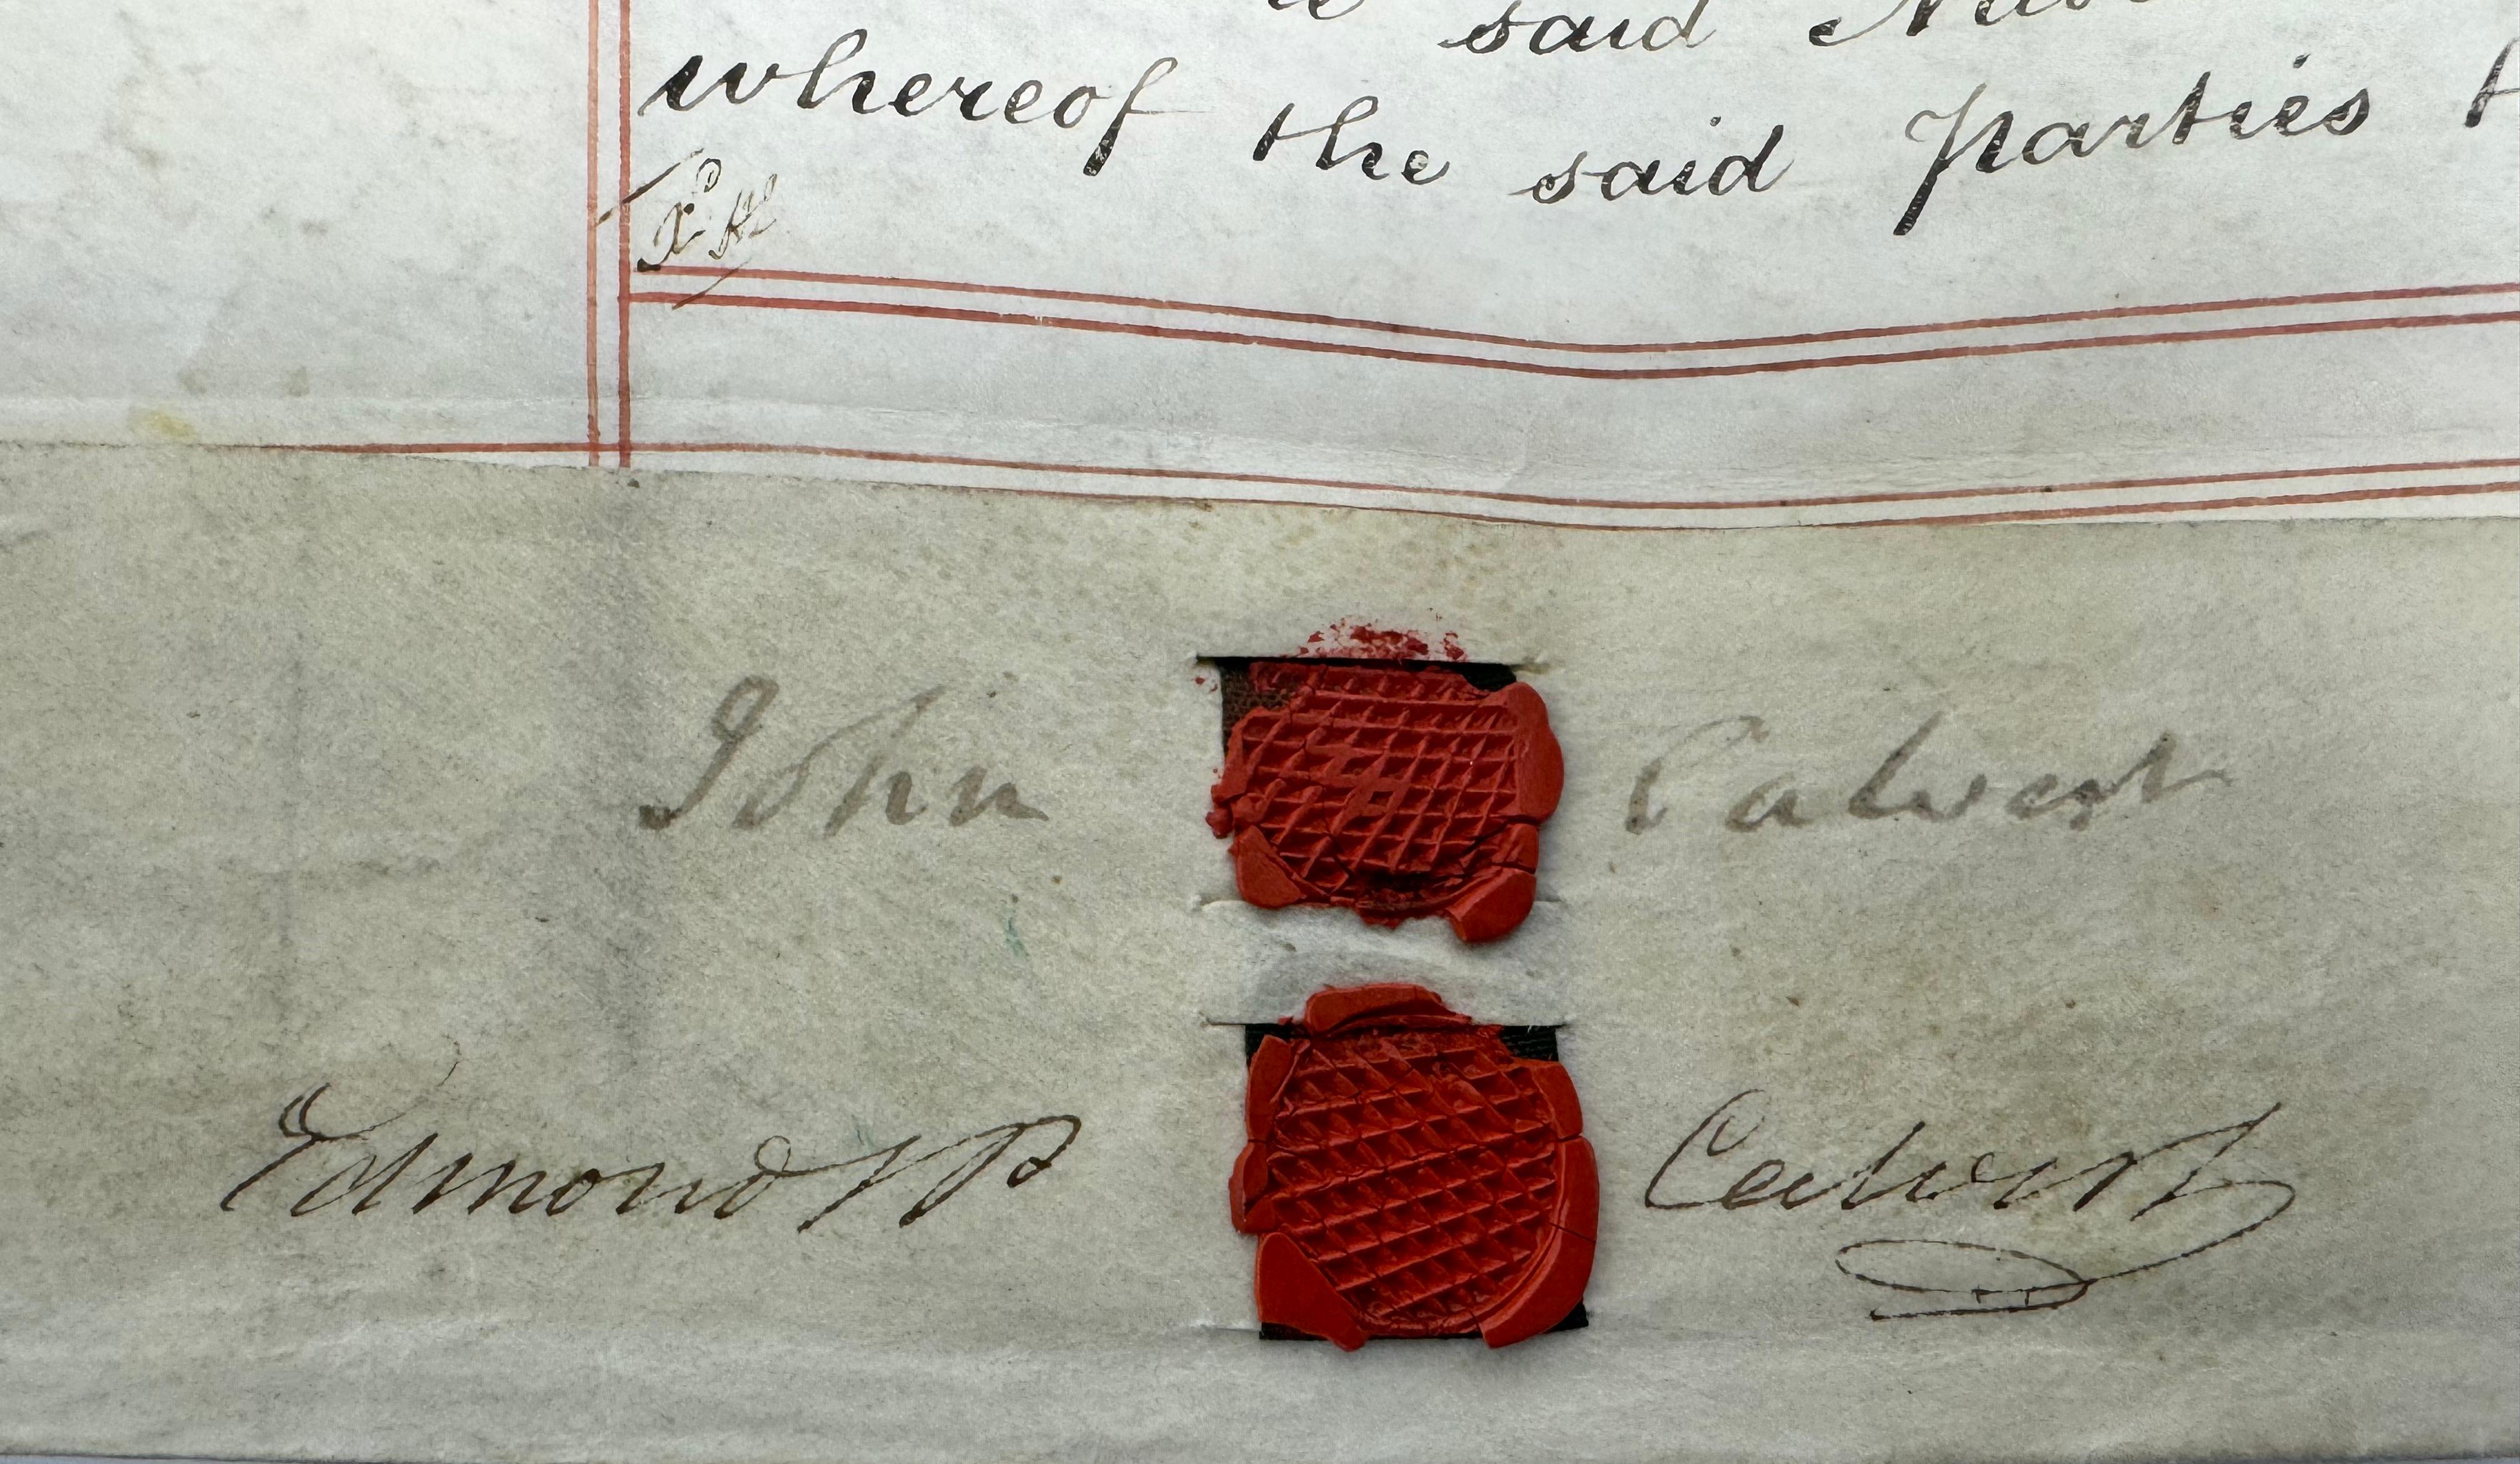 said
whereof the said parties
John Calvert
Edmond P Calvert